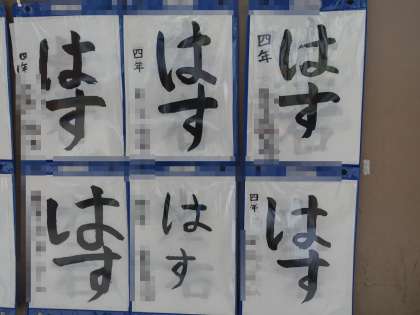 はす
四年
はす
四年
はす
四年
はす
はす
はす
四年